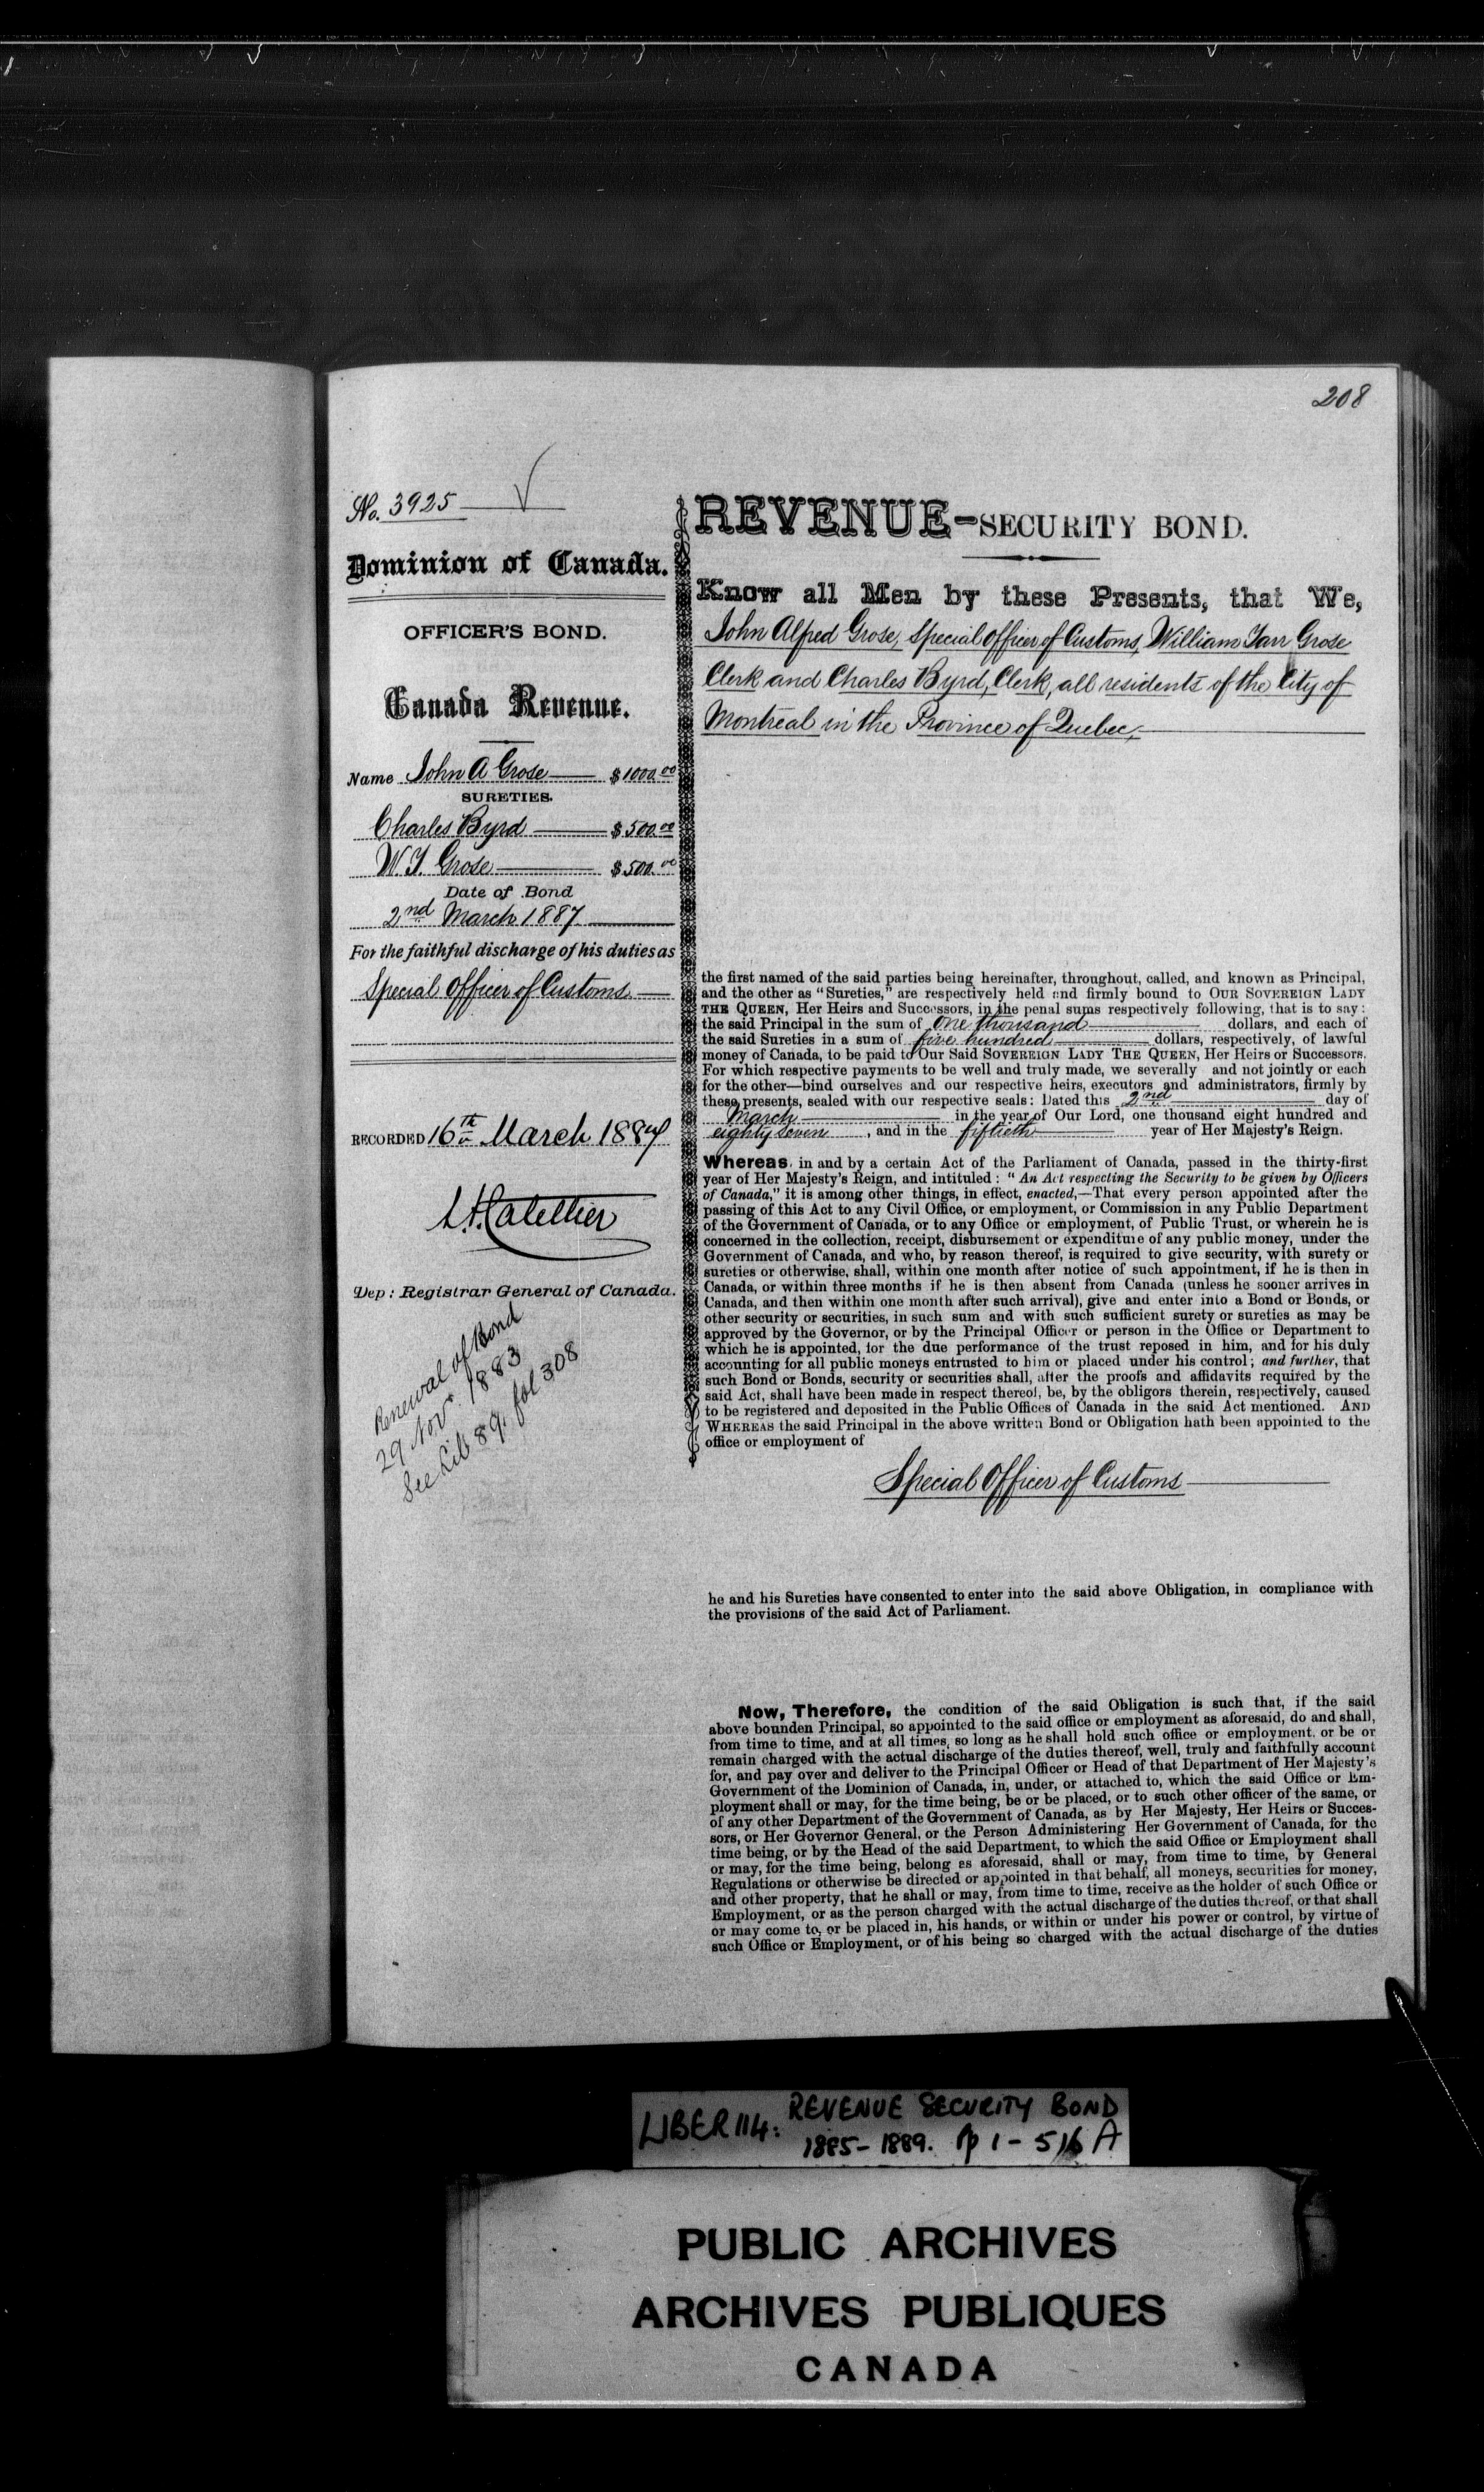 208
No. 3925
Dominion of Canada.
OFFICER'S BOND.
Canada Revenue.
Name John A Grose $1000.00
SURETIES.
Charles Byrd $500.00
W. T. Grose $500.00
Date of Bond
2nd March 1887
For the faithful discharge of his duties as
Special Officer of Customs
RECORDED 16th March 1887
Dep: Registrar General of Canada.
Renewal of Bond
29 Nov. 1883
See Lib 89, fol 308
REVENUE-SECURITY BOND.
Know all Men by these Presents, that We,
John Alfred Grose, Special Officer of Customs, William Grose
Clerk and Charles Byrd, Clerk, all residents of the City of
Montreal in the Province of Quebec,
the first named of the said parties being hereinafter, throughout, called, and known as Principal,
and the other as "Sureties," are respectively held and firmly bound to OUR SOVEREIGN LADY
THE QUEEN, Her Heirs and Successors, in the penal sums respectively following, that is to say:
the said Principal in the sum of one thousand dollars, and each of
the said Sureties in a sum of five hundred dollars, respectively, of lawful
money of Canada, to be paid to Our Said SOVEREIGN LADY THE QUEEN, Her Heirs or Successors.
For which respective payments to be well and truly made, we severally and not jointly or each
for the other—bind ourselves and our respective heirs, executors and administrators, firmly by
these presents, sealed with our respective seals: Dated this 2nd day of
March in the year of Our Lord, one thousand eight hundred and
eighty seven, and in the fiftieth year of Her Majesty's Reign.
Whereas, in and by a certain Act of the Parliament of Canada, passed in the thirty-first
year of Her Majesty's Reign, and intituled: "An Act respecting the Security to be given by Officers
of Canada," it is among other things, in effect, enacted,—That every person appointed after the
passing of this Act to any Civil Office, or employment, or Commission in any Public Department
of the Government of Canada, or to any Office or employment, of Public Trust, or wherein he is
concerned in the collection, receipt, disbursement or expenditure of any public money, under the
Government of Canada, and who, by reason thereof, is required to give security, with surety or
sureties or otherwise, shall, within one month after notice of such appointment, if he is then in
Canada, or within three months if he is then absent from Canada (unless he sooner arrives in
Canada, and then within one month after such arrival), give and enter into a Bond or Bonds, or
other security or securities, in such sum and with such sufficient surety or sureties as may be
approved by the Governor, or by the Principal Officer or person in the Office or Department to
which he is appointed, for the due performance of the trust reposed in him, and for his duly
accounting for all public moneys entrusted to him or placed under his control; and further, that
such Bond or Bonds, security or securities shall, after the proofs and affidavits required by the
said Act, shall have been made in respect thereof, be, by the obligors therein, respectively, caused
to be registered and deposited in the Public Offices of Canada in the said Act mentioned. AND
WHEREAS the said Principal in the above written Bond or Obligation hath been appointed to the
office or employment of
Special Officer of Customs
he and his Sureties have consented to enter into the said above Obligation, in compliance with
the provisions of the said Act of Parliament.
Now, Therefore, the condition of the said Obligation is such that, if the said
above bounden Principal, so appointed to the said office or employment as aforesaid, do and shall,
from time to time, and at all times, so long as he shall hold such office or employment, or be or
remain charged with the actual discharge of the duties thereof, well, truly and faithfully account
for, and pay over and deliver to the Principal Officer or Head of that Department of Her Majesty's
Government of the Dominion of Canada, in, under, or attached to, which the said Office or Em-
ployment shall or may, for the time being, be or be placed, or to such other officer of the same, or
of any other Department of the Government of Canada, as by Her Majesty, Her Heirs or Succes-
sors, or Her Governor General, or the Person Administering Her Government of Canada, for the
time being, or by the Head of the said Department, to which the said Office or Employment shall
or may, for the time being, belong as aforesaid, shall or may, from time to time, by General
Regulations or otherwise be directed or appointed in that behalf, all moneys, securities for money,
and other property, that he shall or may, from time to time, receive as the holder of such Office or
Employment, or as the person charged with the actual discharge of the duties thereof, or that shall
or may come to, or be placed in, his hands, or within or under his power or control, by virtue of
such Office or Employment, or of his being so charged with the actual discharge of the duties
LIBER 114: REVENUE SECURITY BOND
1885-1889. pp 1-516A
PUBLIC ARCHIVES
ARCHIVES PUBLIQUES
CANADA